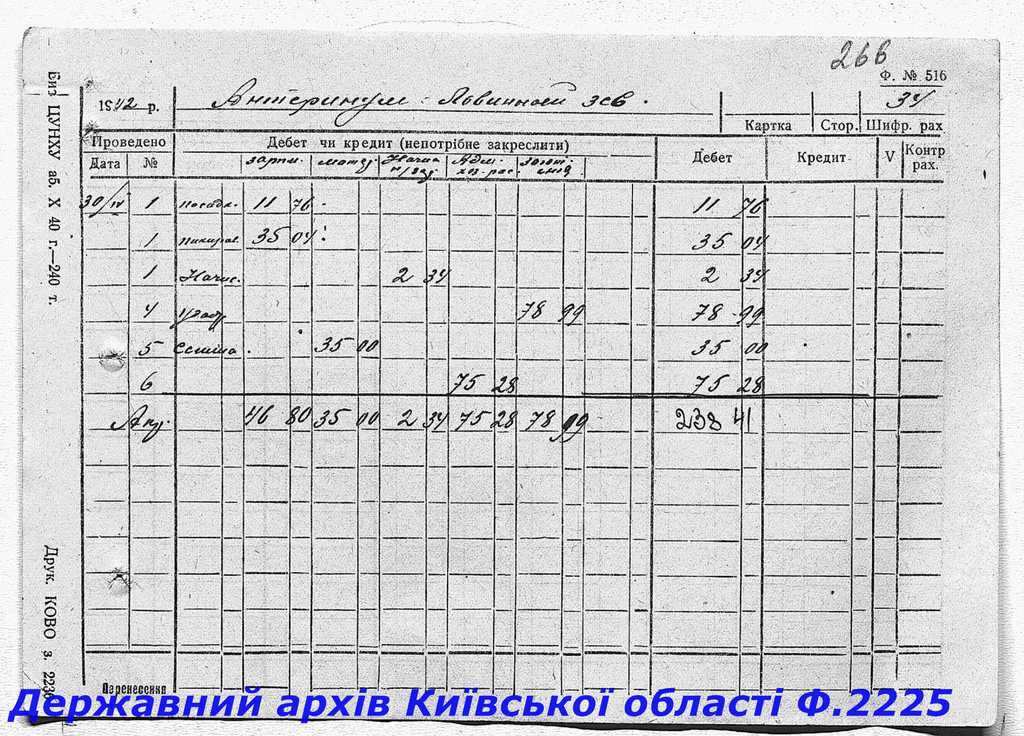 266
Ф. № 516
1942 р.
Антеринум:
34
Картка Стор. Шифр. рах
Проведено Дебет чи кредит (непотрібне закреслити) Дебет Кредит V Контр рах.
Дата № зарпл.
30/IV 1 11 76 11 76
1 35 04 35 04
1 Начис. 2 34 2 34
4 78 99 78 99
5 35 00 35 00
6 75 28 75 28
46 80 35 00 2 34 75 28 78 99 238 41
Перенесення
Биз ЦУНХУ аб. X 40 г.—240 т.
Друк. КОВО з. 2236
Державний архів Київської області Ф.2225